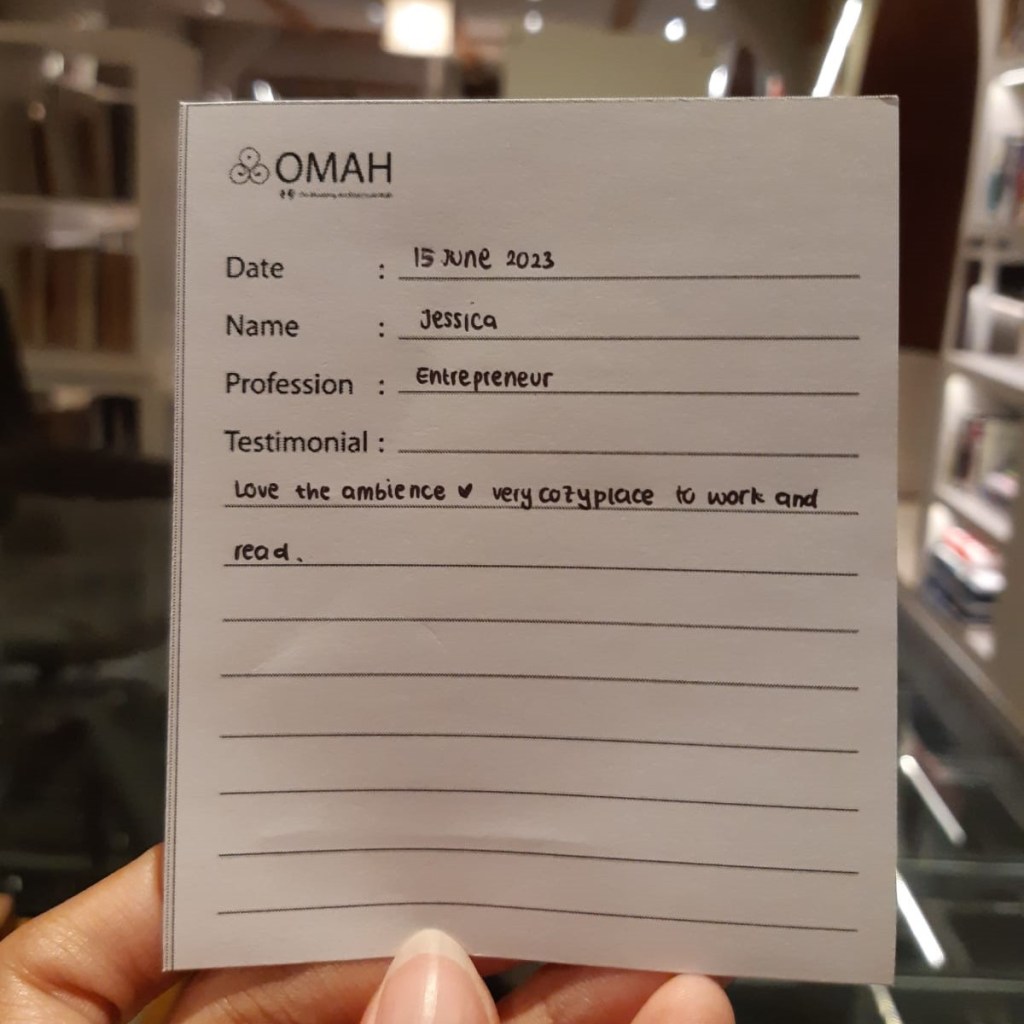 OMAH
Date : 15 June 2023
Name : Jessica
Profession : Entrepreneur
Testimonial :
Love the ambience ♥ very cozy place to work and
read.